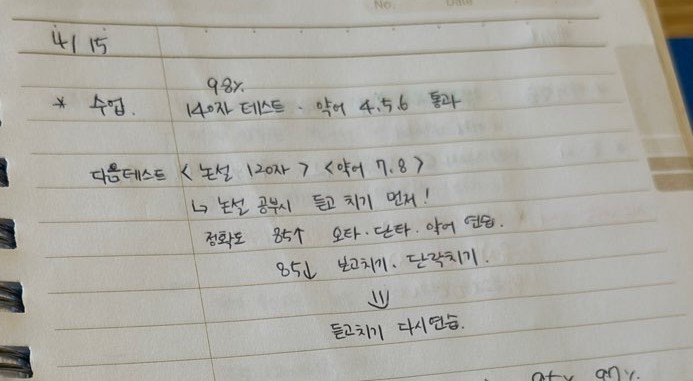 No.
4/15
98%
* 수업. 140자 테스트 · 약어 4.5.6 통과
다음테스트 < 논설 120자 > <약어 7.8 >
↳ 논설 공부시 듣고 치기 먼저!
정확도 85↑ 오타·단타·약어 연습.
85↓ 보고치기. 단락치기.
⇓
듣고치기 다시연습.
97%.